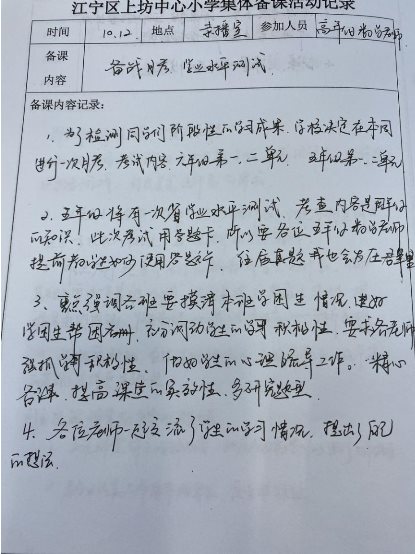 江宁区上坊中心小学集体备课活动记录
时间 10.12. 地点 录播室 参加人员 高年级数学老师
备课内容 备战月考、学业水平测试.
备课内容记录:
1、为了检测同学们阶段性的学习成果,学校决定在本周
进行一次月考,考试内容六年级第一、二单元,五年级第一、二单元
2、五年级将有一次省学业水平测试,考查内容是四年级
的知识,此次考试用答题卡,所以要各位五年级数学老师
提前教学生如何使用答题卡,往届真题我也会发在群里
3、重点强调各班要摸清本班学困生情况,建好
学困生帮困,充分调动学生的学习积极性,要求各老师
狠抓学习积极性,做好学生的心理疏导工作。精心
备课,提高课堂的实效性,多研究题型.
4、各位老师一起交流了学生的学习情况,提出了自己
的想法.